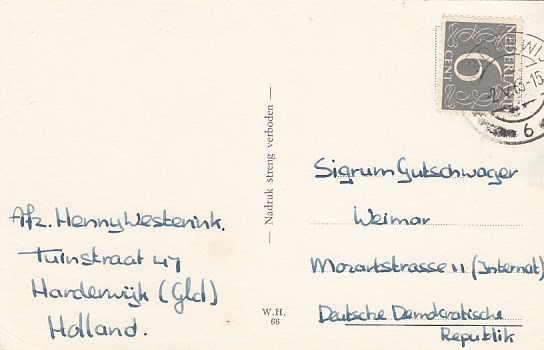 NEDERLAND
6
CENT
WIJ
-2.V.63-15
6
Sigrum Gutschwager
Weimar
Mozartstrasse 11 (Internat)
Deutsche Demokratische
Republik
— Nadruk streng verboden —
W.H.
66
Afz. Henny Westerink.
Tuinstraat 47
Harderwijk (Gld)
Holland.